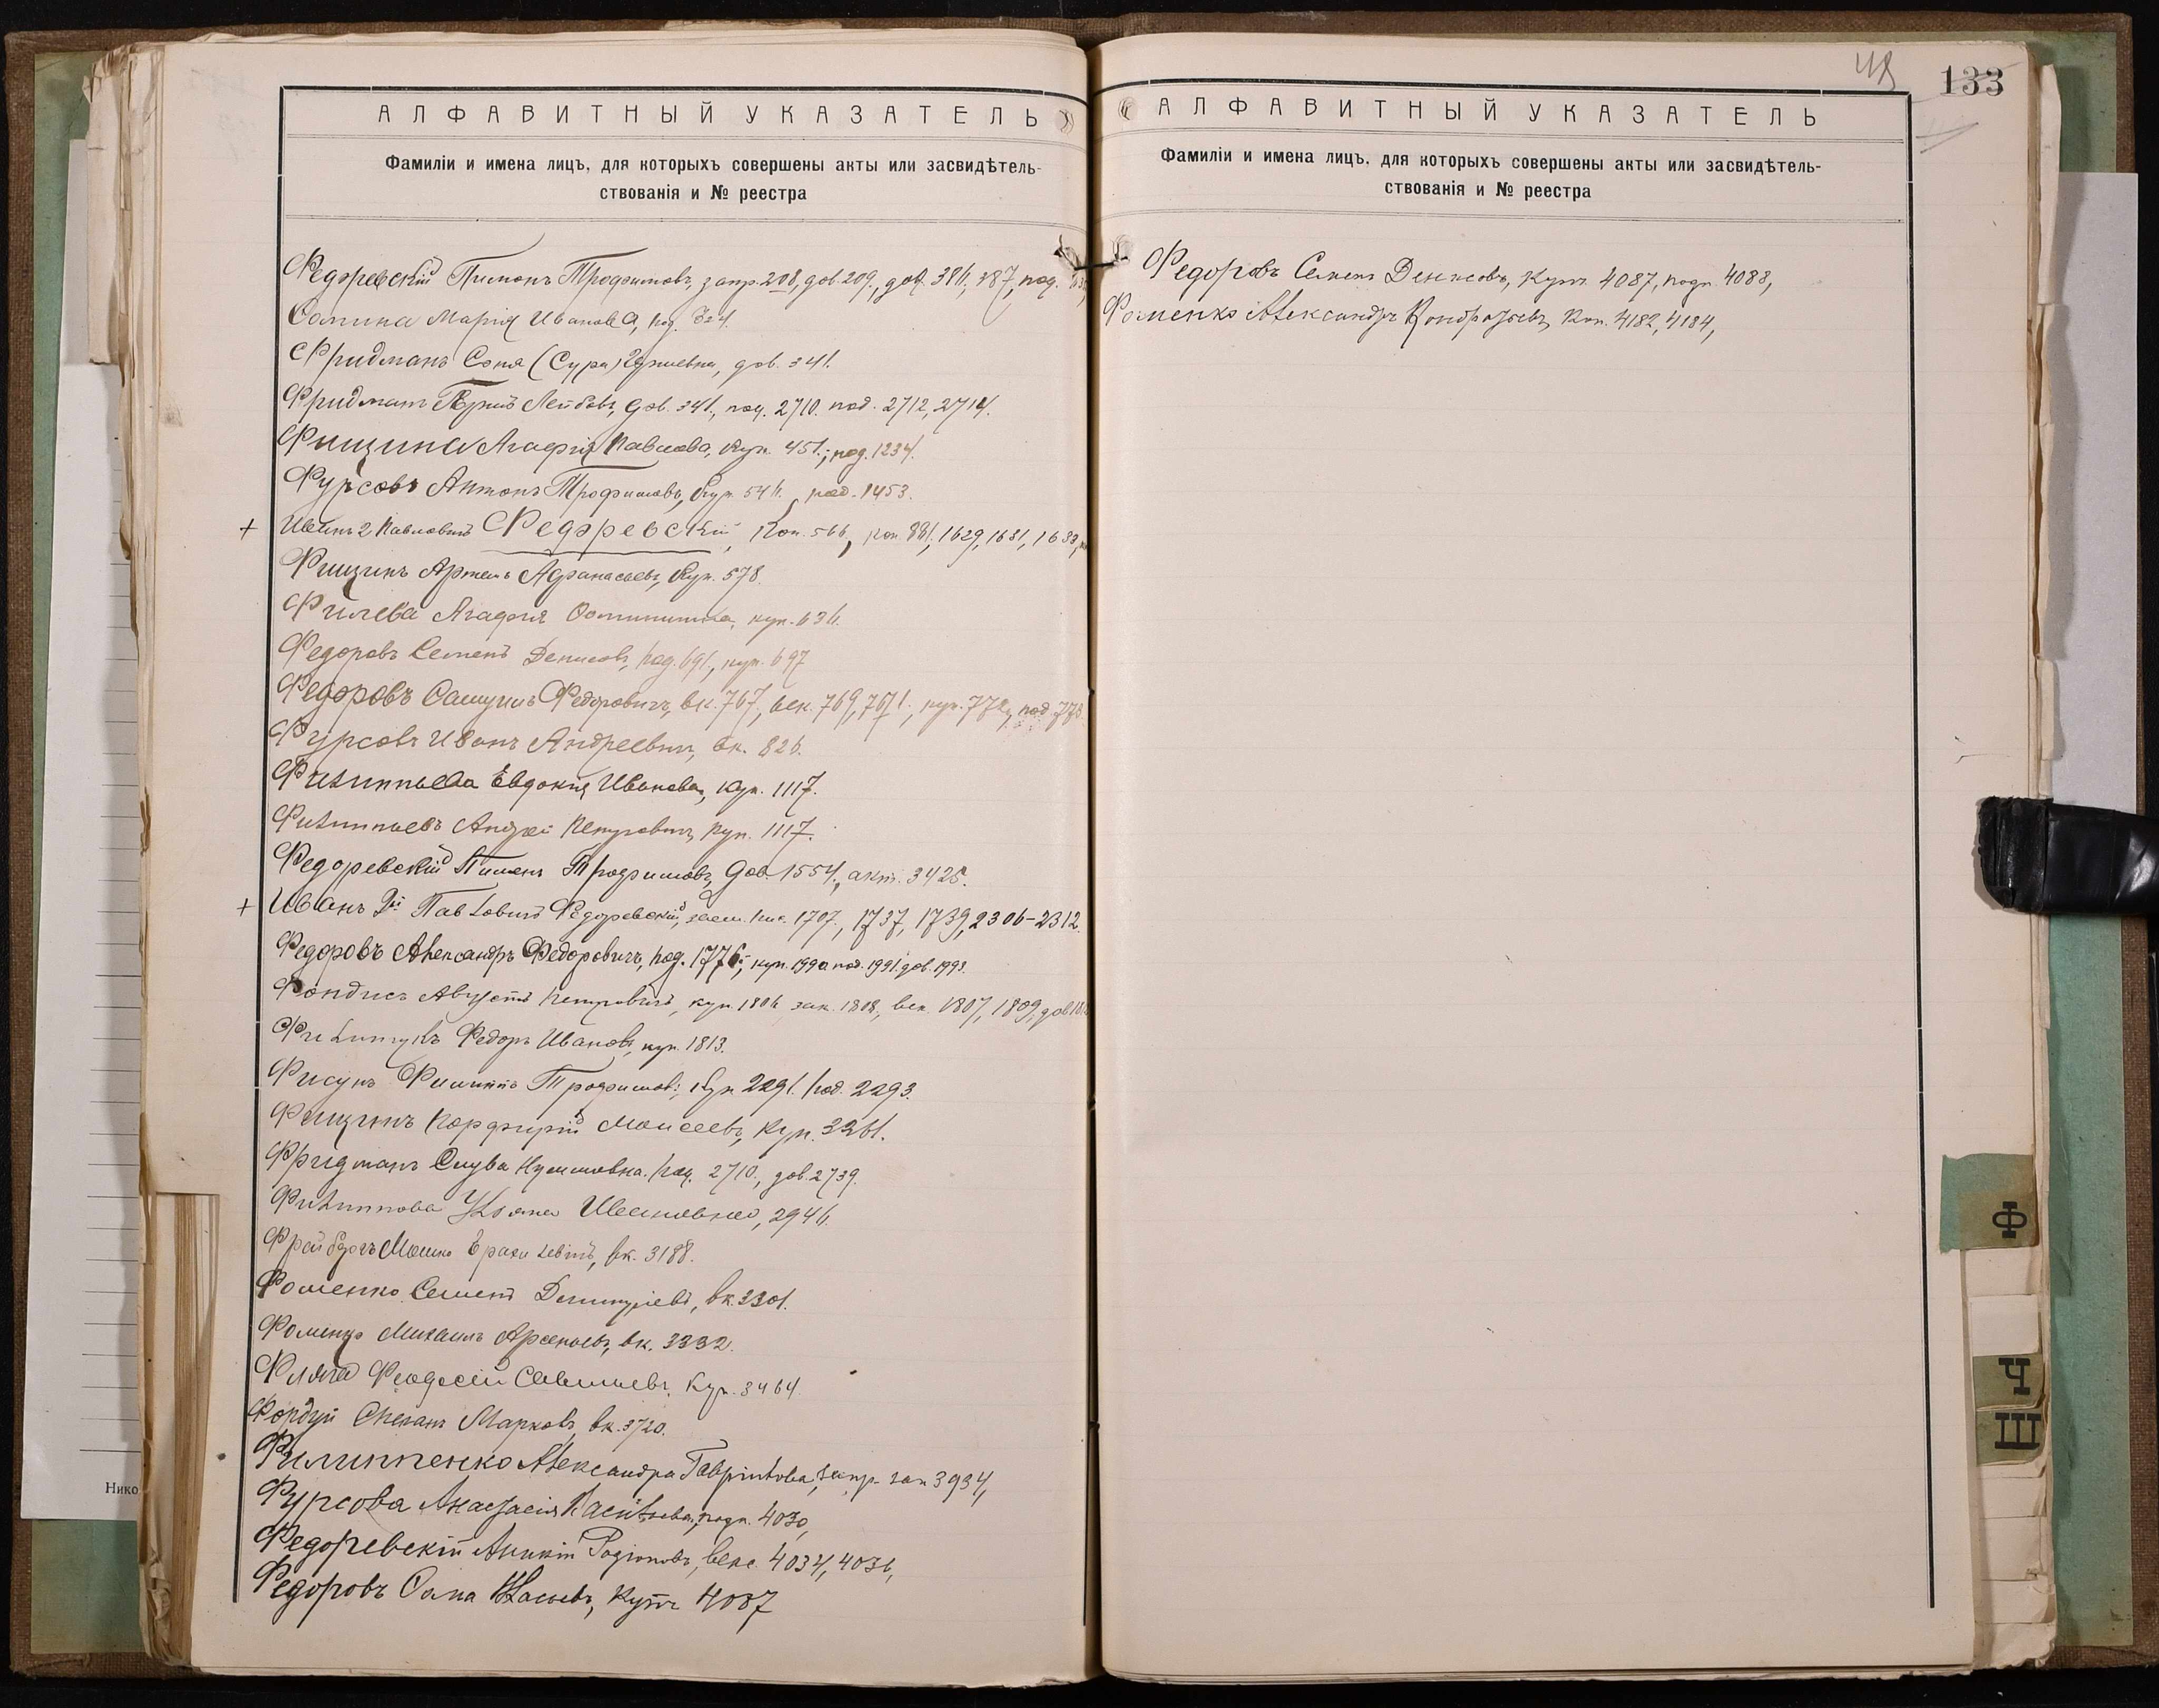 АЛФАВИТНЫЙ УКАЗАТЕЛЬ
Фамиліи и имена лицъ, для которыхъ совершены акты или засвидѣтель-
ствованія и № реестра
Федоревскій Пименъ Трофимовъ, запр. 208, дов. 209, дов. 386, 387, под.
Марія Иванова, под. 324.
Фридманъ Соня (Сура) дов. 341.
Фридманъ Лейбовъ, дов. 341, под. 2710. под. 2712, 2714.
Фищина Агафія Павлова, куп. 451; под. 1234.
Фурсовъ Антонъ Трофимовъ, куп. 546, под. 1453.
+ Иванъ 2 Павловичъ Федоревскій, коп. 566, коп. 881, 1629, 1631, 1633,
Фищинъ Артемъ Афанасьевъ, куп. 578.
Филева Агафія куп. 636.
Федоровъ Семенъ Денисовъ, под. 691, куп. 697
Федоровъ Самуилъ Федоровичъ, вк. 767, век. 769, 771, куп. 772, под. 773
Фурсовъ Иванъ Андреевичъ, вк. 826.
Филиппьева Евдокія Иванова, куп. 1117.
Филиппьевъ Андрей Петровичъ, куп. 1117.
Федоревскій Пименъ Трофимовъ, дов. 1554, акт. 3425.
+ Иванъ 2й Павловичъ Федоревскій, 1707, 1737, 1739, 2306-2312.
Федоровъ Александръ Федоровичъ, под. 1776; куп. 1990 под. 1991. дов. 1993.
Фондисъ Августъ Петровичъ, куп. 1806 зак. 1808, век. 1807, 1809, дов.
Федоръ Ивановъ, куп. 1813.
Фисунъ Филиппъ Трофимовъ, куп. 2291. под. 2293.
Фищинъ Порфирій Моисеевъ, куп. 2261.
Фридманъ под. 2710, дов. 2739.
Филиппова Ульяна Ивановна, 2946.
Фрайбергъ Мошко вк. 3188.
Фоменко Семенъ Дмитріевъ, вк. 3301.
Фоменко Михаилъ Арсеньевъ, вк. 3332.
Фляга Феодосій Савельевъ, куп. 3464.
Фордуй Степанъ Марковъ, вк. 3720.
Филиппенко Александра Гаврилова, запр. зап 3934,
Фурсова Анастасія Васильева, подп. 4030,
Федоревскій Аникій Родіоновъ, векс. 4034, 4036,
Федоровъ Сама Власьевъ, купч. 4087
133
АЛФАВИТНЫЙ УКАЗАТЕЛЬ
Фамиліи и имена лицъ, для которыхъ совершены акты или засвидѣтель-
ствованія и № реестра
Федоровъ Семенъ Денисовъ, купч. 4087, подп. 4088,
Фоменко Александръ Кондратьевъ, коп. 4182, 4184,
Ф
Ч
Ш
Нико